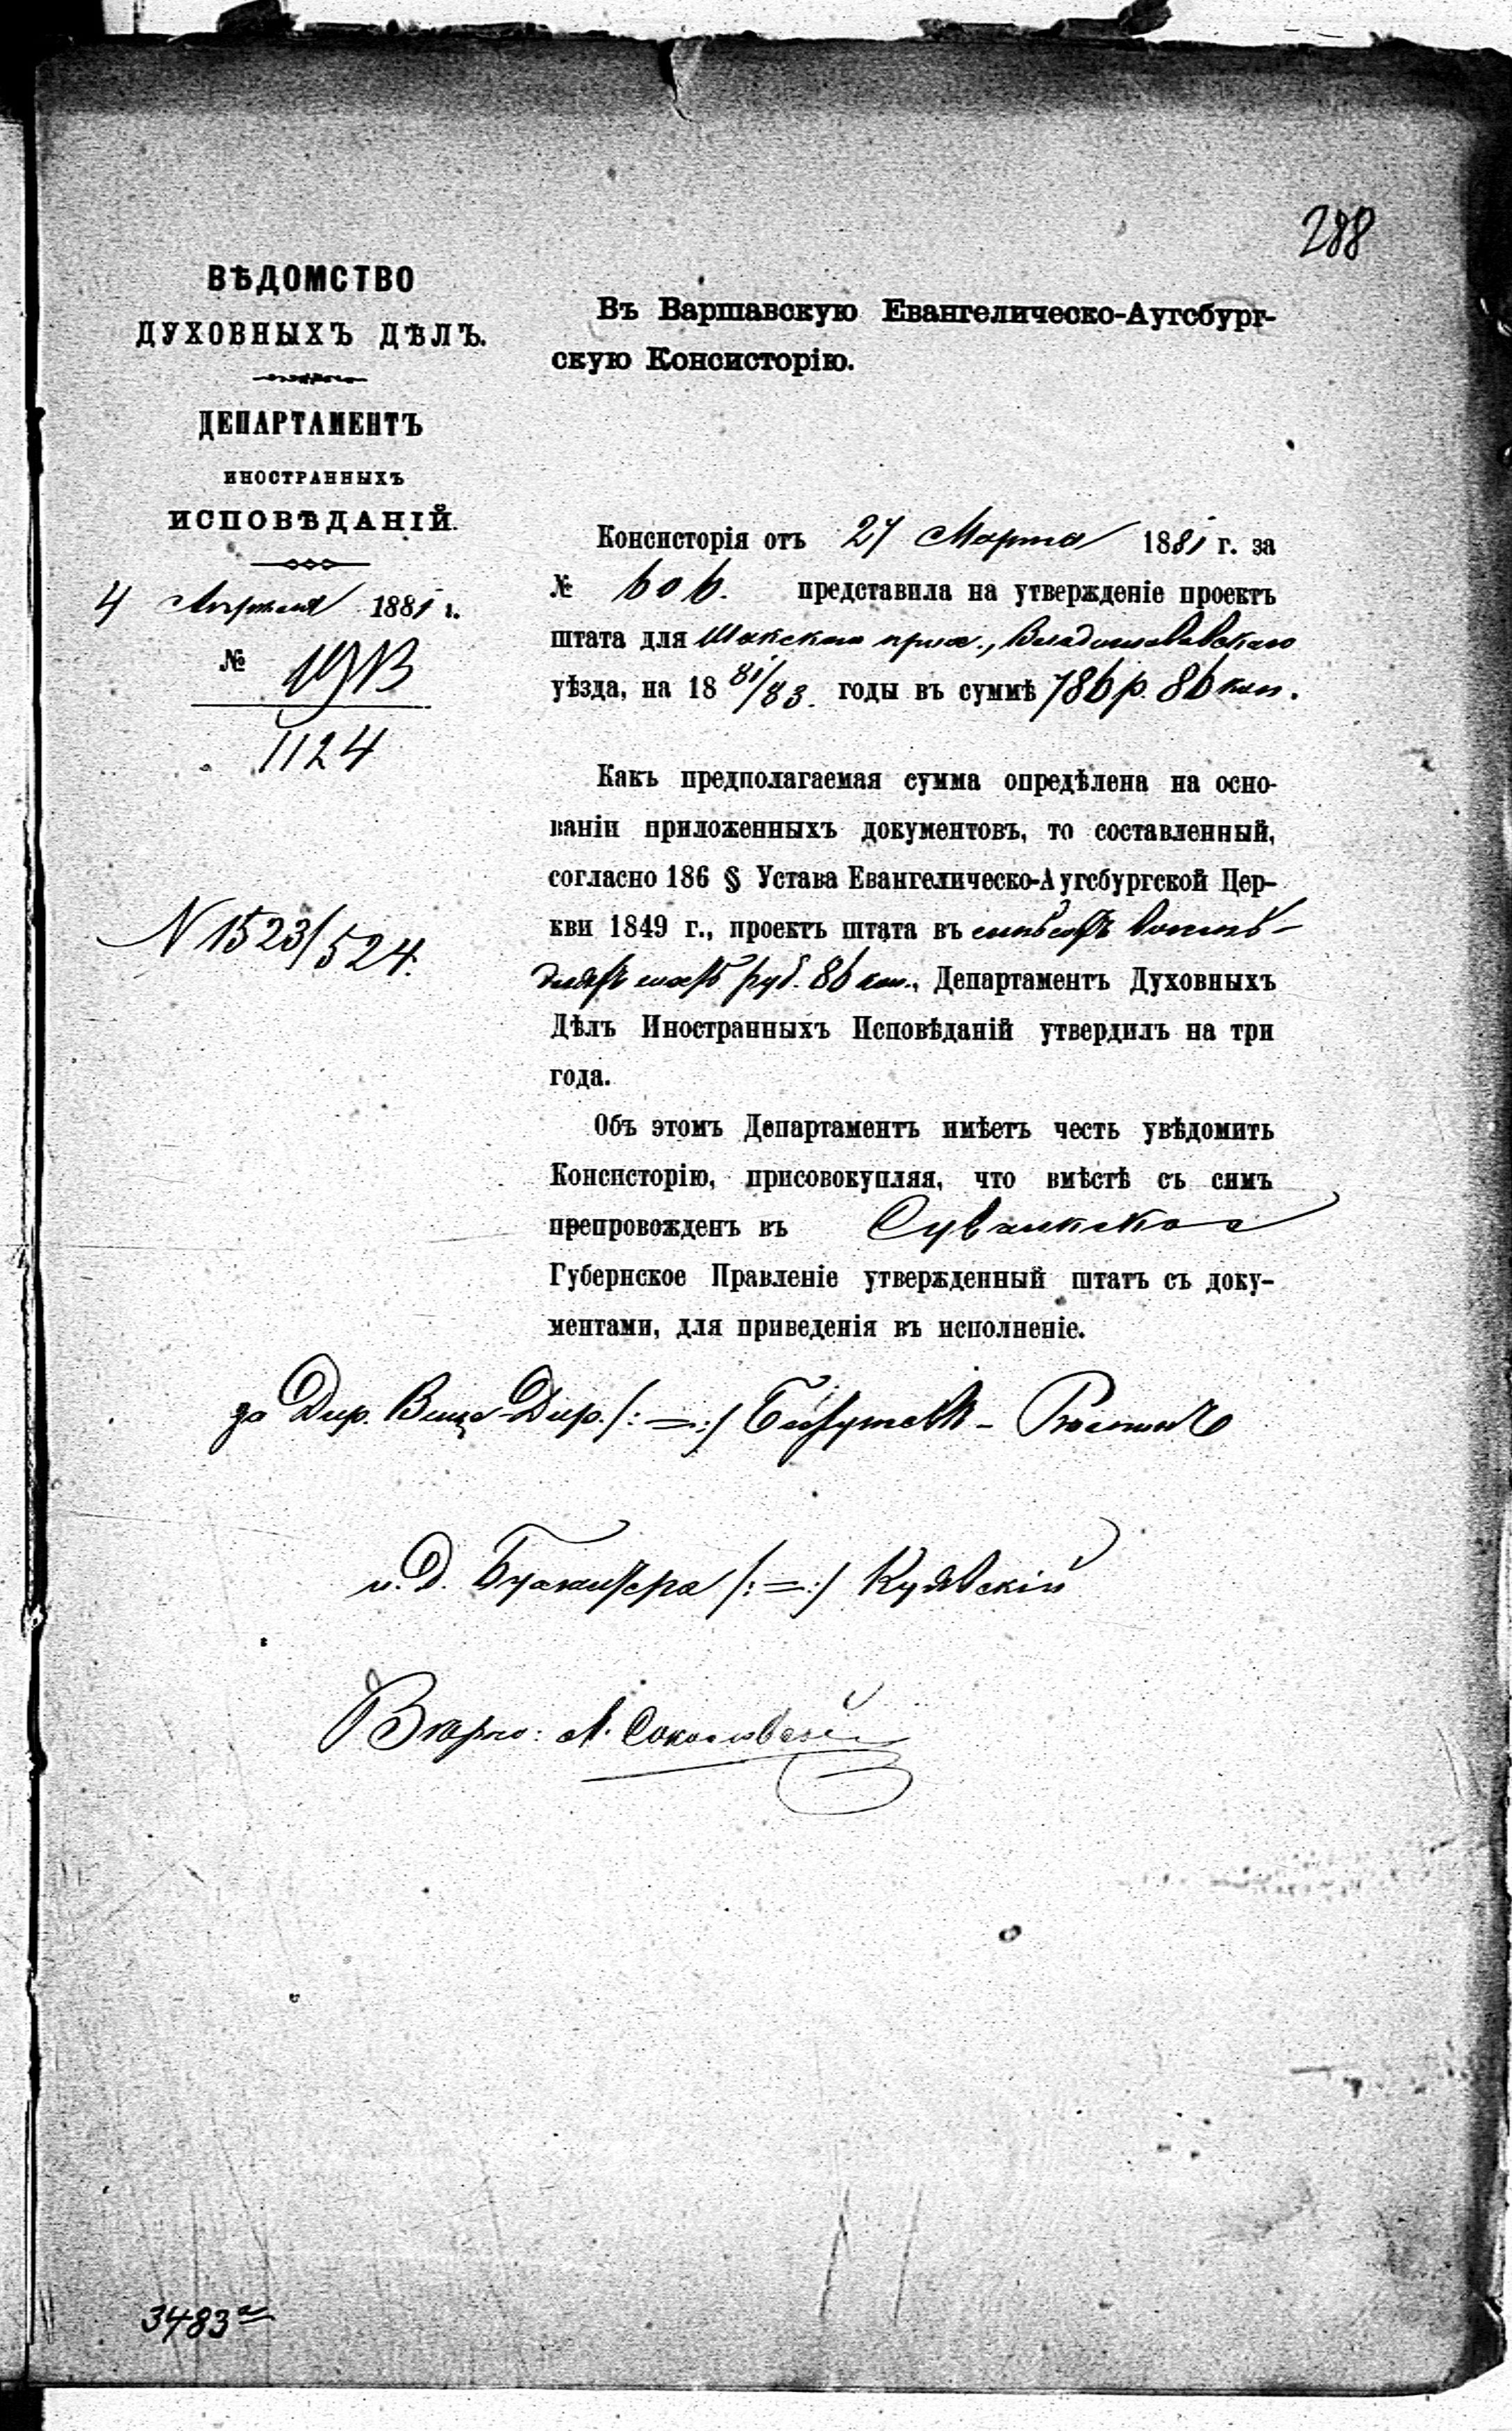 288
ВѢДОМСТВО
ДУХОВНЫХЪ ДѢЛЪ.
ДЕПАРТАМЕНТЪ
ИНОСТРАННЫХЪ
ИСПОВѢДАНІЙ.
4 Апрѣля 1881 г.
№
1124
N 1523/524.
Въ Варшавскую Евангелическо-Аугсбург-
скую Консисторію.
Консисторія отъ 27 Марта 1881 г. за
№ 606. представила на утвержденіе проектъ
штата для Шакскаго прих., Владиславовскаго
уѣзда, на 18 81/83. годы въ суммѣ 786 р. 86 коп.
Какъ предполагаемая сумма опредѣлена на осно-
ваніи приложенныхъ документовъ, то составленный,
согласно 186 § Устава Евангелическо-Аугсбургской Цер-
кви 1849 г., проектъ штата въ семьсотъ восемь-
десятъ шесть руб. 86 коп., Департаментъ Духовныхъ
Дѣлъ Иностранныхъ Исповѣданій утвердилъ на три
года.
Объ этомъ Департаментъ имѣетъ честь увѣдомить
Консисторію, присовокупляя, что вмѣстѣ съ симъ
препровожденъ въ Сувалкское
Губернское Правленіе утвержденный штатъ съ доку-
ментами, для приведенія въ исполненіе.
за Дир. Вице-Дир. /:=:/
и. д. Бухгалтера /:=:/ Куявскій
Вѣрно: А. Соколовскій
3483